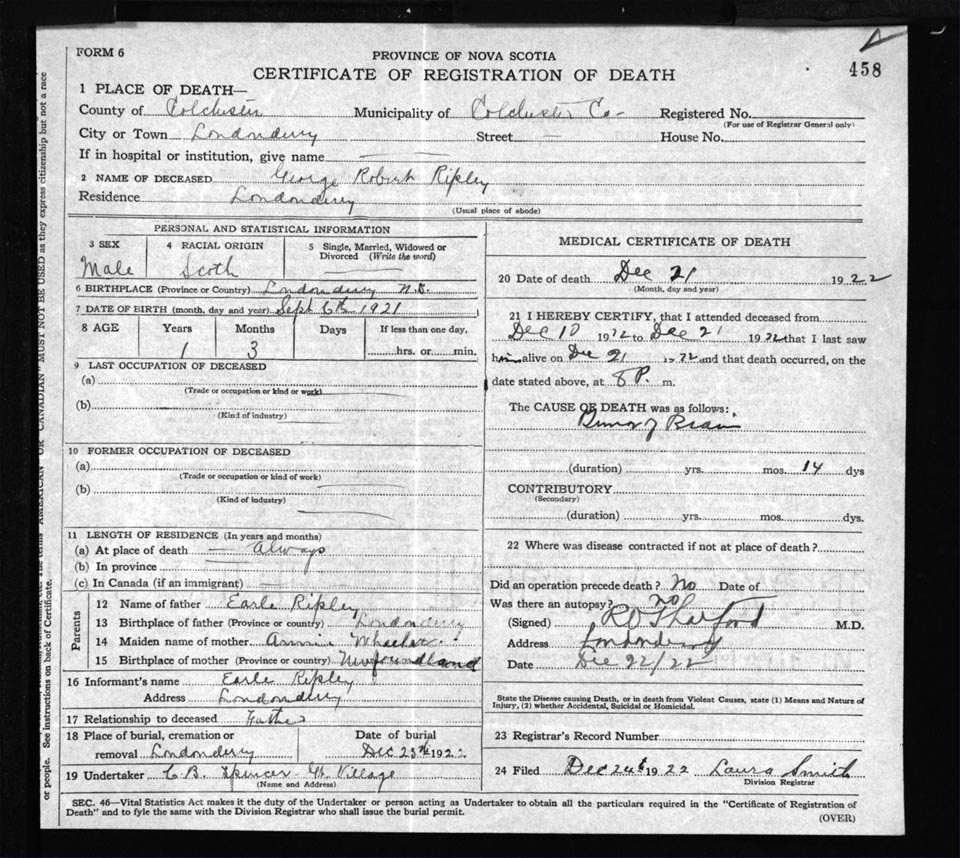 FORM 6
PROVINCE OF NOVA SCOTIA
CERTIFICATE OF REGISTRATION OF DEATH
458
1 PLACE OF DEATH—
County of Colchester Municipality of Colchester Co- Registered No.
(For use of Registrar General only)
City or Town Londonderry Street — House No.
If in hospital or institution, give name
2 NAME OF DECEASED George Robert Ripley
Residence Londonderry
(Usual place of abode)
PERSONAL AND STATISTICAL INFORMATION
3 SEX Male
4 RACIAL ORIGIN Scoth
5 Single, Married, Widowed or Divorced (Write the word)
6 BIRTHPLACE (Province or Country) Londonderry N.S.
7 DATE OF BIRTH (month, day and year) Sept 6th 1921
8 AGE Years Months Days If less than one day,
1 3 hrs. or min.
9 LAST OCCUPATION OF DECEASED
(a)
(Trade or occupation or kind or work)
(b)
(Kind of industry)
10 FORMER OCCUPATION OF DECEASED
(a)
(Trade or occupation or kind of work)
(b)
(Kind of industry)
11 LENGTH OF RESIDENCE (In years and months)
(a) At place of death — Always
(b) In province
(c) In Canada (if an immigrant)
Parents
12 Name of father Earle Ripley
13 Birthplace of father (Province or country) Londonderry
14 Maiden name of mother Annie
15 Birthplace of mother (Province or country) Newfoundland
16 Informant's name Earle Ripley
Address Londonderry
17 Relationship to deceased Father
18 Place of burial, cremation or Date of burial
removal Londonderry Dec 23rd 1922
19 Undertaker C. B. Spencer Gt. Village
(Name and Address)
MEDICAL CERTIFICATE OF DEATH
20 Date of death Dec 21 1922
(Month, day and year)
21 I HEREBY CERTIFY, that I attended deceased from
Dec 10 1922 to Dec 21 1922 that I last saw
him alive on Dec 21 1922 and that death occurred, on the
date stated above, at 8 P. m.
The CAUSE OF DEATH was as follows:
Brain
(duration) yrs. mos. 14 dys
CONTRIBUTORY
(Secondary)
(duration) yrs. mos. dys.
22 Where was disease contracted if not at place of death?
Did an operation precede death? No Date of
Was there an autopsy? no
(Signed) M.D.
Address Londonderry
Date Dec 22/22
State the Disease causing Death, or in death from Violent Causes, state (1) Means and Nature of
Injury, (2) whether Accidental, Suicidal or Homicidal.
23 Registrar's Record Number
24 Filed Dec 24th 1922 Laura Smith
Division Registrar
SEC. 46—Vital Statistics Act makes it the duty of the Undertaker or person acting as Undertaker to obtain all the particulars required in the "Certificate of Registration of
Death" and to fyle the same with the Division Registrar who shall issue the burial permit.
(OVER)
or people. See instructions on back of Certificate.
"CANADIAN" MUST NOT BE USED as they express citizenship but not a race